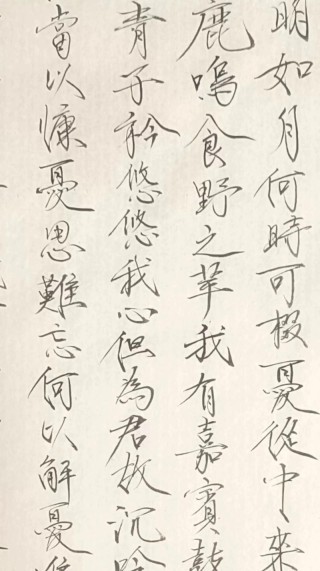 明如月何時可掇憂從中來
鹿鳴食野之苹我有嘉賓鼓
青子衿悠悠我心但為君故沉吟
當以慷憂思難忘何以解憂